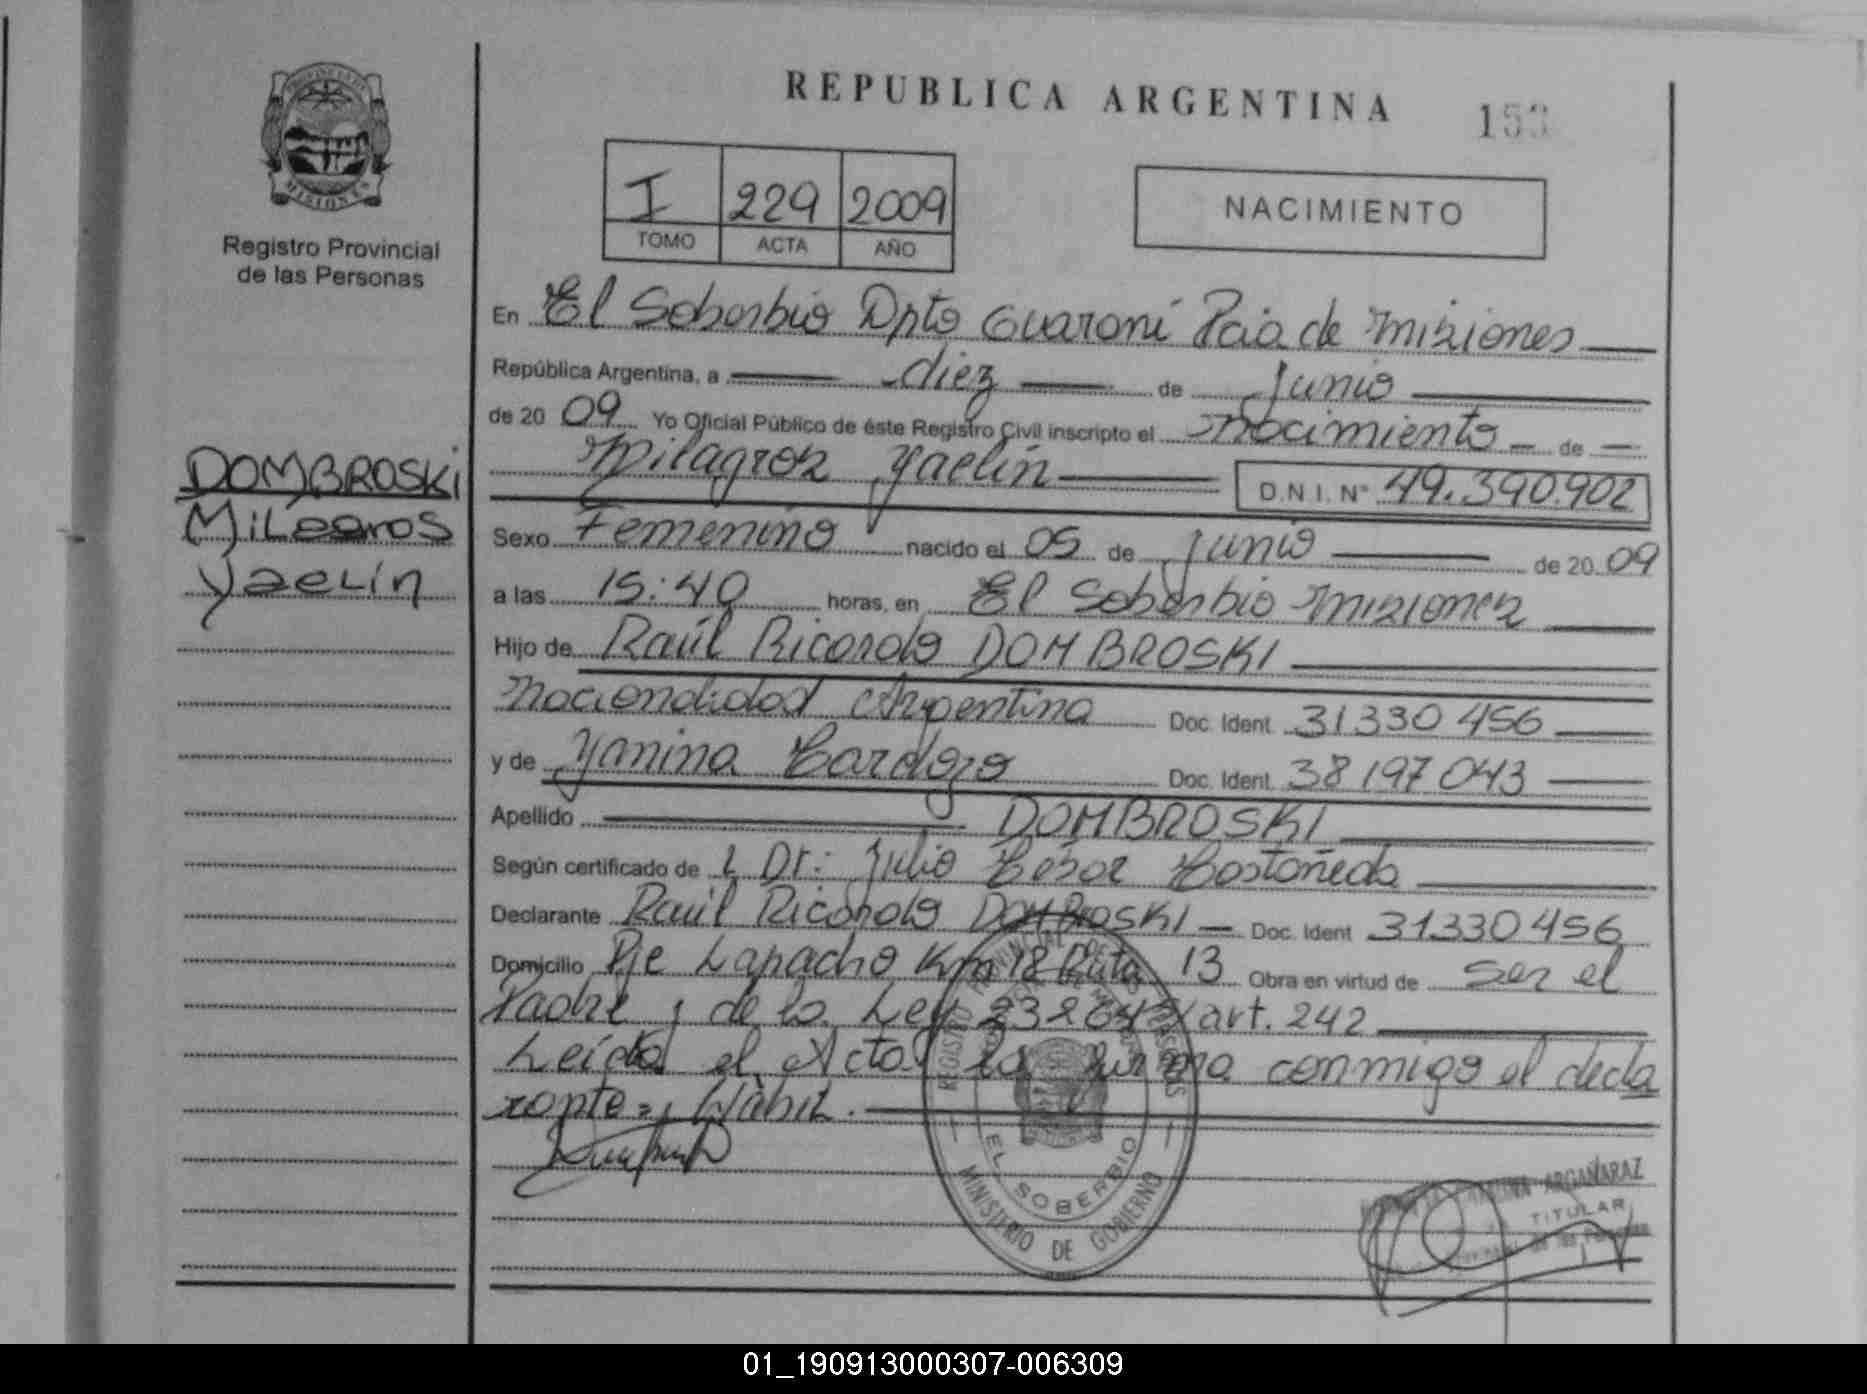 REPUBLICA ARGENTINA
PROVINCIA DE
MISIONES
Registro Provincial
de las Personas
I 229 2009
TOMO ACTA AÑO
NACIMIENTO
En El Soberbio Dpto Guaraní Pcia de Misiones
República Argentina, a diez de Junio
de 2009 Yo Oficial Público de éste Registro Civil inscripto el nacimiento de
Milagros Yaelín D.N.I. Nº 49.390.902
DOMBROSKi
Milagros
Yaelín
Sexo Femenino nacido el 05 de junio de 2009
a las 15:40 horas, en El Soberbio Misiones
Hijo de Raúl Ricardo DOMBROSKI
Nacionalidad Argentina Doc. Ident. 31330456
y de Yanina Cardozo Doc. Ident. 38197043
Apellido DOMBROSKI
Según certificado de L Dr: Julio Cesar Castañeda
Declarante Raúl Ricardo DOMBROSKI Doc. Ident 31330456
Domicilio Pje Lapacho Km 18 Ruta 13 Obra en virtud de ser el
Padre y de la Ley 23264 art. 242
Leída el Acta la firma conmigo el decla
rante
MINISTERIO DE GOBIERNO
EL SOBERBIO
ARGAÑARAZ
TITULAR
de las Personas
01_190913000307-006309